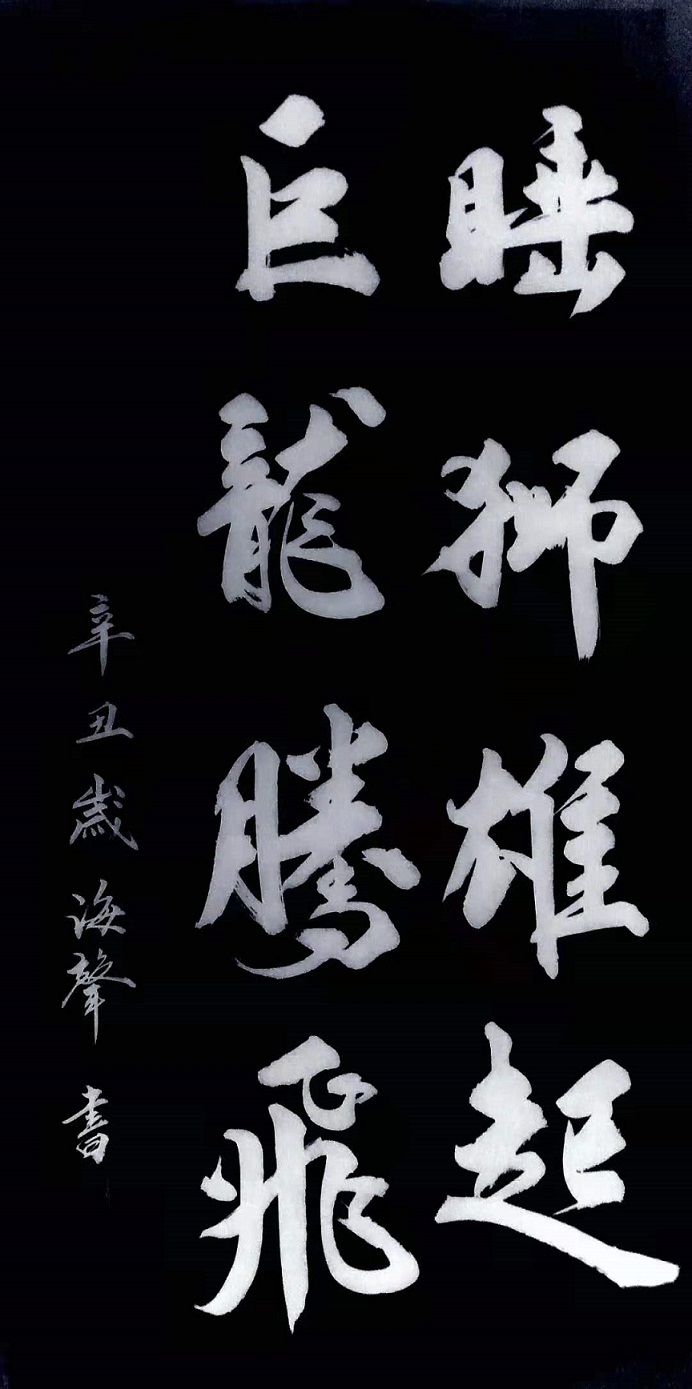 睡獅雄起
巨龍騰飛
辛丑歲海聲書